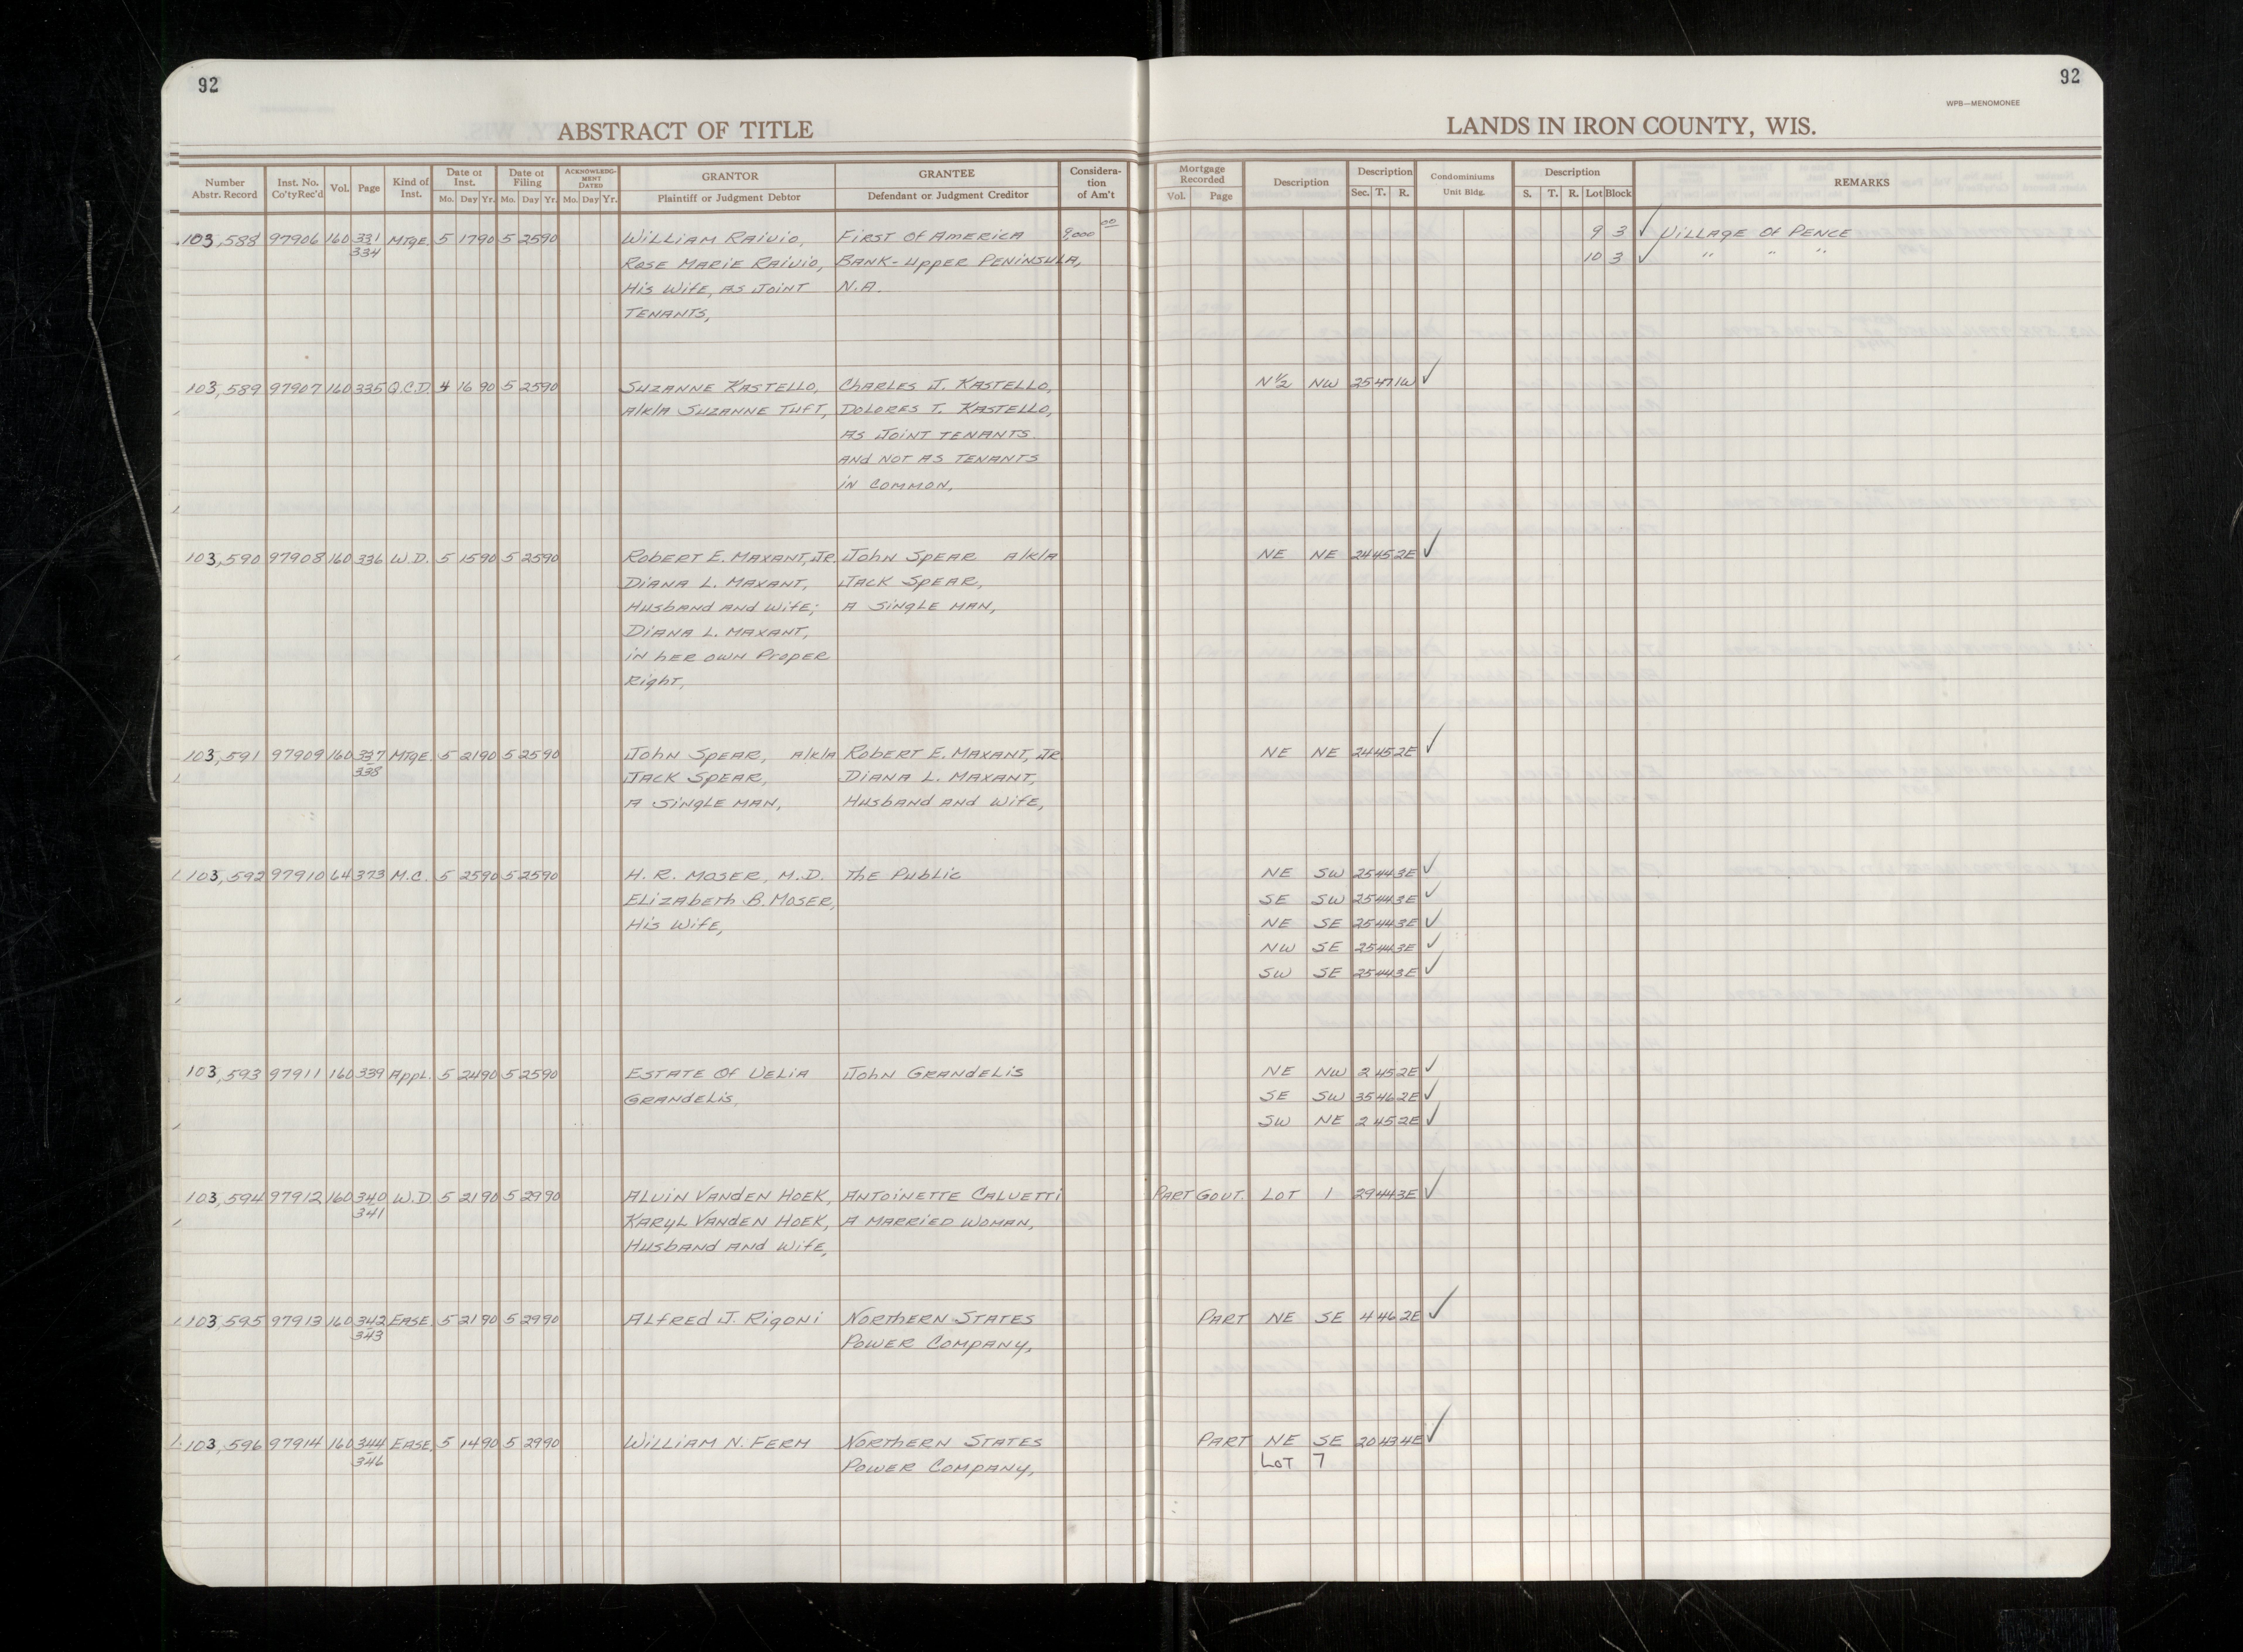 92
ABSTRACT OF TITLE
Number Abstr. Record | Inst. No. Co'ty Rec'd | Vol. | Page | Kind of Inst. | Date of Inst. Mo. Day Yr. | Date of Filing Mo. Day Yr. | ACKNOWLEDGMENT DATED Mo. Day Yr. | GRANTOR Plaintiff or Judgment Debtor | GRANTEE Defendant or Judgment Creditor | Consideration of Am't
92
WPB—MENOMONEE
LANDS IN IRON COUNTY, WIS.
Mortgage Recorded Vol. Page | Description | Description Sec. T. R. | Condominiums Unit Bldg. | Description S. T. R. Lot Block | REMARKS
103,588 97906 160 331 334 Mtge. 5 17 90 5 25 90 William Raivio, First Of America 9,000 00 9 3 ✓ Village Of Pence
Rose Marie Raivio, Bank-Upper Peninsula, 10 3 ✓ " " "
His Wife, As Joint N.A.
Tenants,
103,589 97907 160 335 Q.C.D. 4 16 90 5 25 90 Suzanne Kastello, Charles J. Kastello, N½ NW 25 47 1W ✓
a/k/a Suzanne Tuft, Dolores T. Kastello,
As Joint Tenants
And Not As Tenants
In Common,
103,590 97908 160 336 W.D. 5 15 90 5 25 90 Robert E. Maxant, Jr. John Spear a/k/a NE NE 24 45 2E ✓
Diana L. Maxant, Jack Spear,
Husband And Wife; A Single Man,
Diana L. Maxant,
In Her Own Proper
Right,
103,591 97909 160 337 338 Mtge. 5 21 90 5 25 90 John Spear, a/k/a Robert E. Maxant, Jr. NE NE 24 45 2E ✓
Jack Spear, Diana L. Maxant,
A Single Man, Husband And Wife,
103,592 97910 64 373 M.C. 5 25 90 5 25 90 H. R. Moser, M.D. The Public NE SW 25 44 3E ✓
Elizabeth B. Moser, SE SW 25 44 3E ✓
His Wife, NE SE 25 44 3E ✓
NW SE 25 44 3E ✓
SW SE 25 44 3E ✓
103,593 97911 160 339 Appl. 5 24 90 5 25 90 Estate Of Velia John Grandelis NE NW 2 45 2E ✓
Grandelis, SE SW 35 46 2E ✓
SW NE 2 45 2E ✓
103,594 97912 160 340 341 W.D. 5 21 90 5 29 90 Alvin Vanden Hoek, Antoinette Calvetti Part Govt. Lot 1 29 44 3E ✓
Karyl Vanden Hoek, A Married Woman,
Husband And Wife,
103,595 97913 160 342 343 Ease. 5 21 90 5 29 90 Alfred J. Rigoni Northern States Part NE SE 4 46 2E ✓
Power Company,
103,596 97914 160 344 346 Ease. 5 14 90 5 29 90 William N. Ferm Northern States Part NE SE 20 43 4E ✓
Power Company, Lot 7